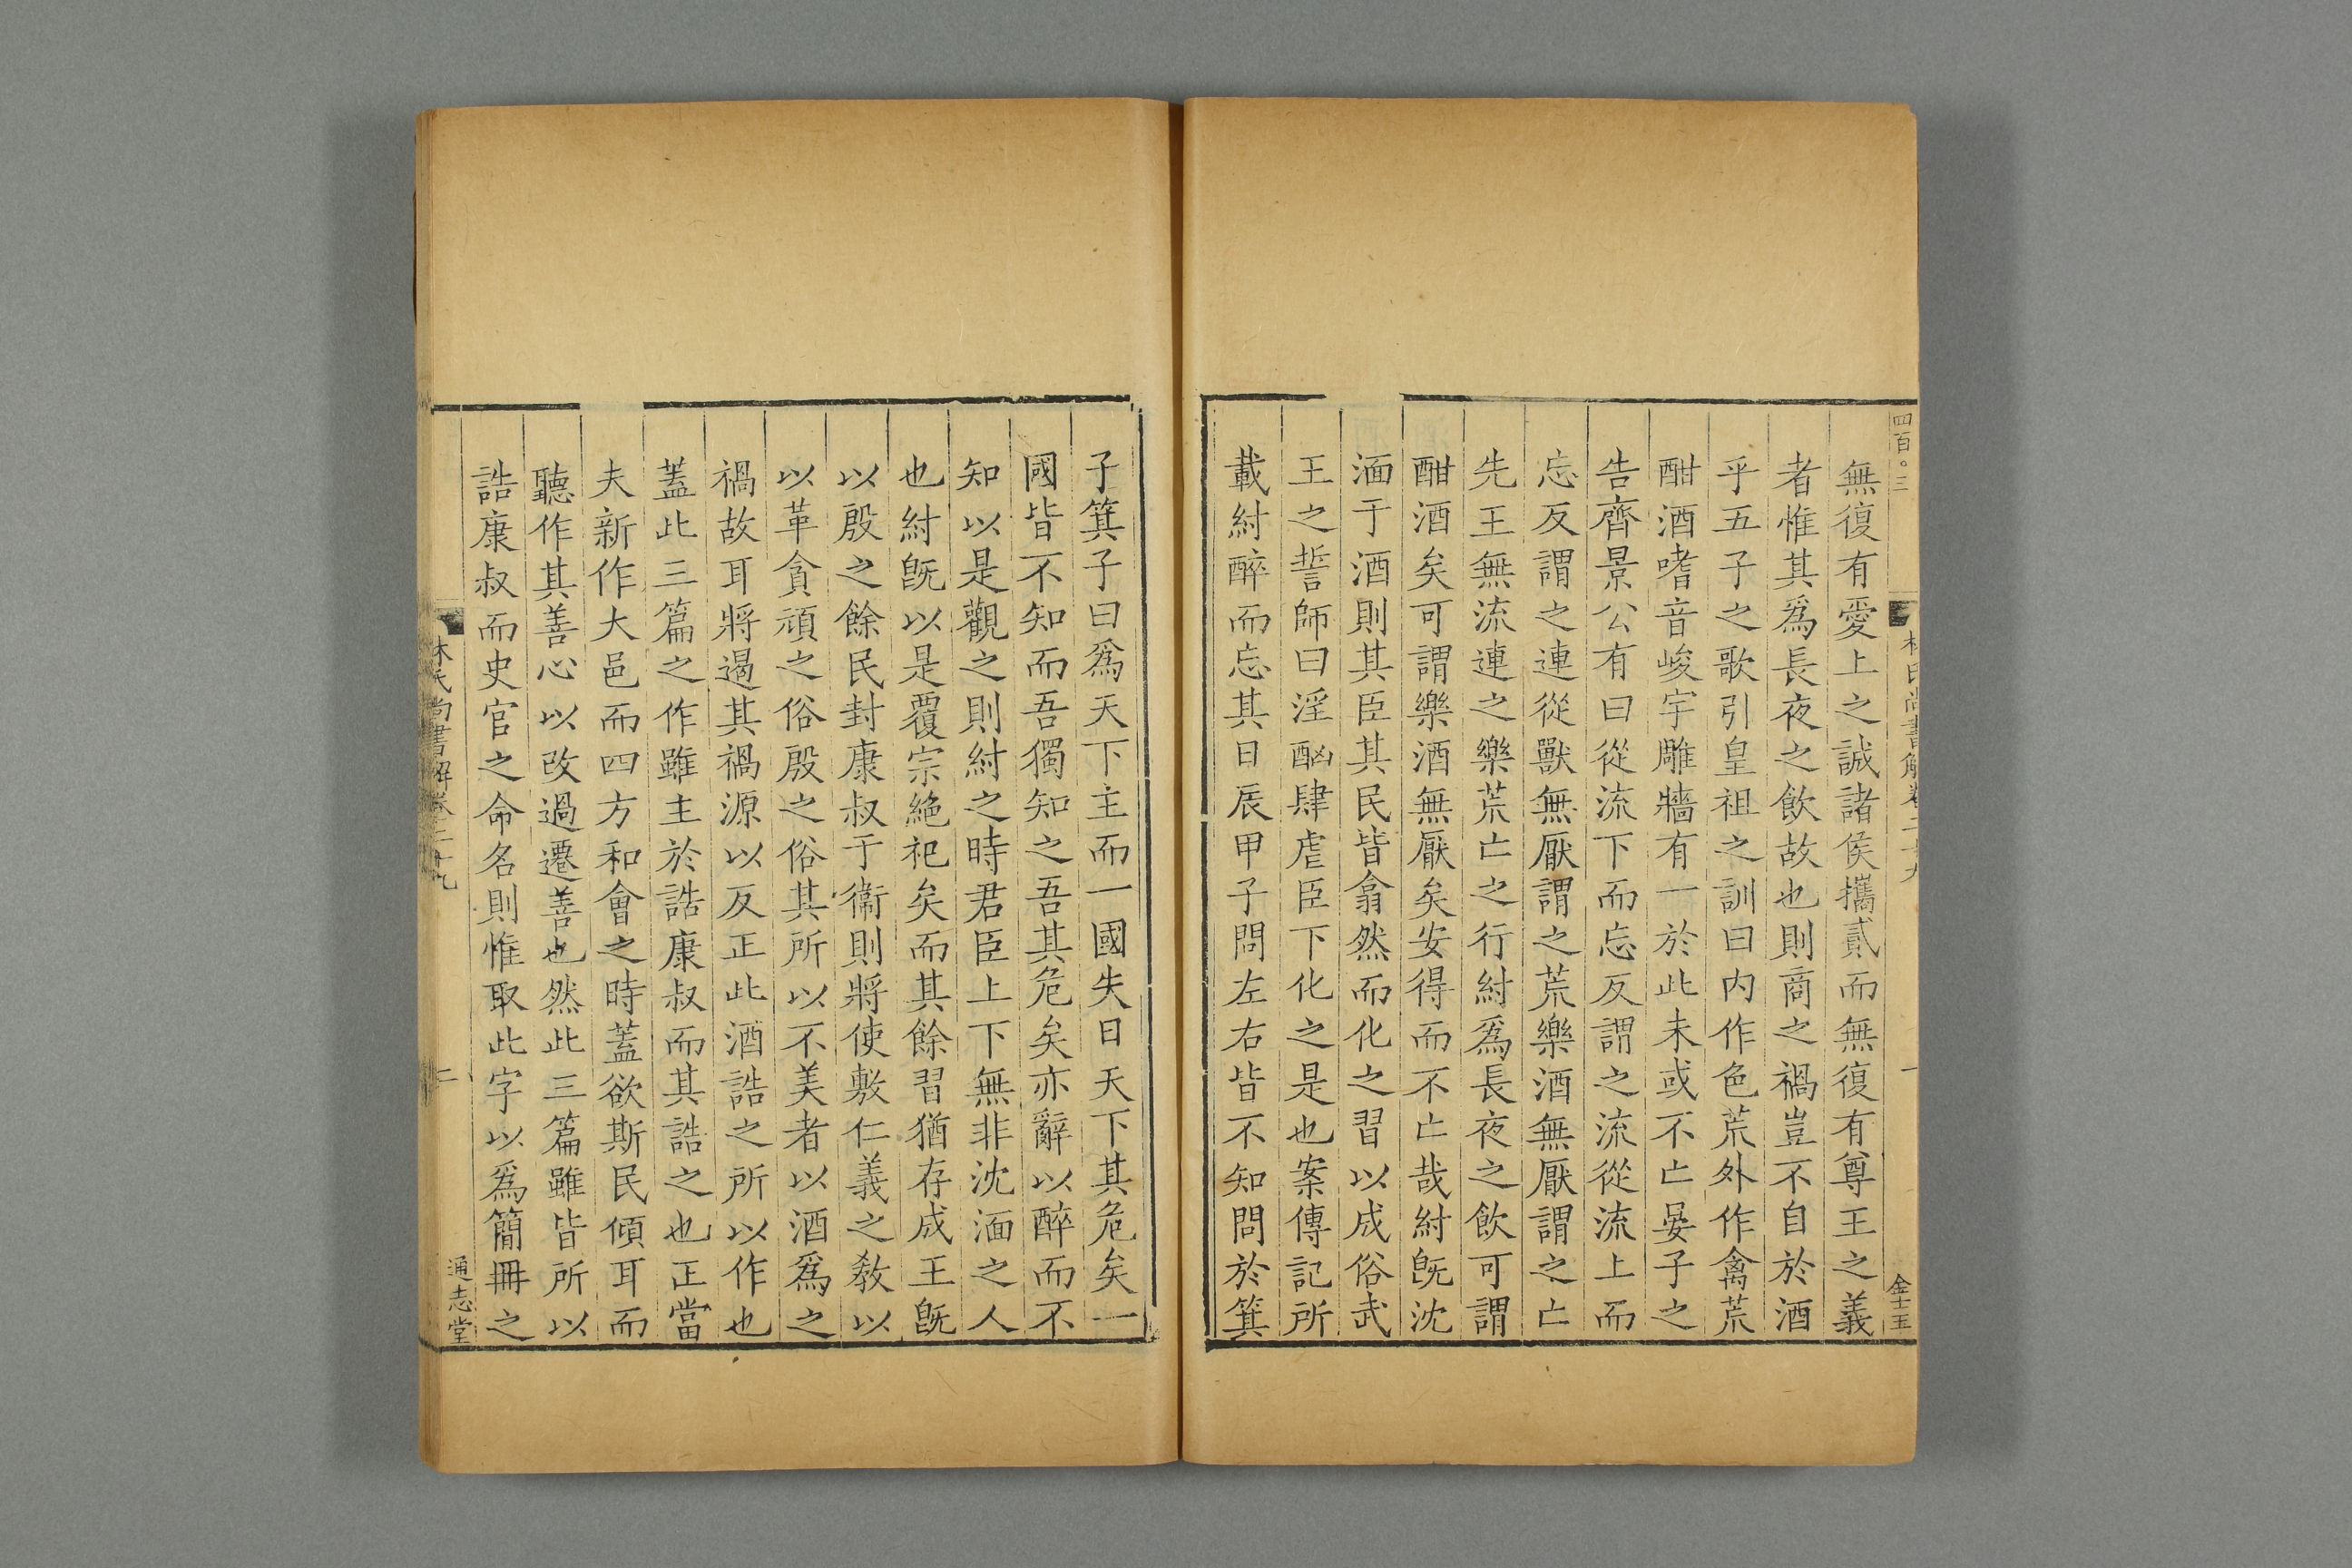 四百○三
林氏尚書解卷二十九
一
金士玉
無復有愛上之誠諸侯攜貳而無復有尊王之義
者惟其爲長夜之飲故也則商之禍豈不自於酒
乎五子之歌引皇祖之訓曰内作色荒外作禽荒
酣酒嗜音峻宇雕牆有一於此未或不亡晏子之
告齊景公有曰從流下而忘反謂之流從流上而
忘反謂之連從獸無厭謂之荒樂酒無厭謂之亡
先王無流連之樂荒亡之行紂爲長夜之飲可謂
酣酒矣可謂樂酒無厭矣安得而不亡哉紂旣沈
湎于酒則其臣其民皆翕然而化之習以成俗武
王之誓師曰淫酗肆虐臣下化之是也案傳記所
載紂醉而忘其日辰甲子問左右皆不知問於箕
子箕子曰爲天下主而一國失日天下其危矣一
國皆不知而吾獨知之吾其危矣亦辭以醉而不
知以是觀之則紂之時君臣上下無非沈湎之人
也紂旣以是覆宗絶祀矣而其餘習猶存成王旣
以殷之餘民封康叔于衞則將使敷仁義之敎以
以革貪頑之俗殷之俗其所以不美者以酒爲之
禍故耳將遏其禍源以反正此酒誥之所以作也
蓋此三篇之作雖主於誥康叔而其誥之也正當
夫新作大邑而四方和會之時蓋欲斯民傾耳而
聽作其善心以改過遷善也然此三篇雖皆所以
誥康叔而史官之命名則惟取此字以爲簡冊之
林氏尚書解卷二十九
二
通志堂